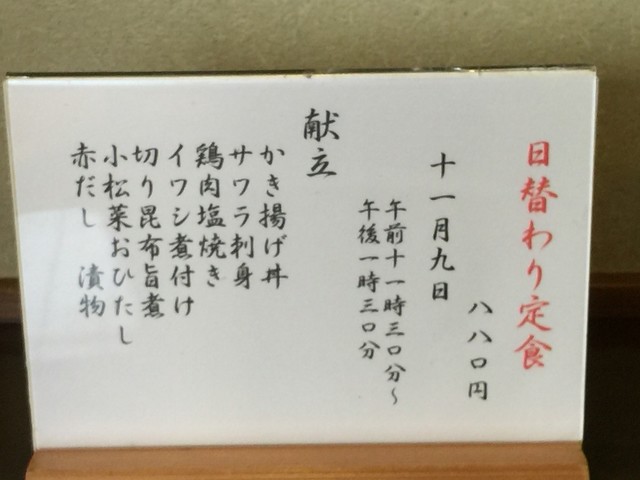 日替わり定食
八八〇円
十一月九日
午前十一時三〇分～
午後一時三〇分
献立
かき揚げ丼
サワラ刺身
鶏肉塩焼き
イワシ煮付け
切り昆布旨煮
小松菜おひたし
赤だし　漬物